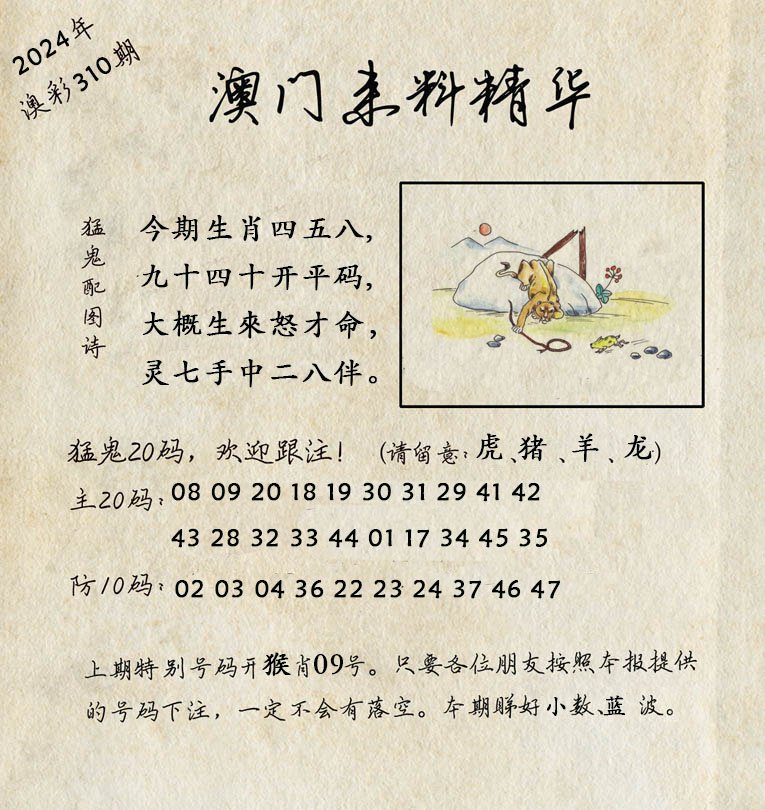 2024年
澳彩310期
澳门来料精华
猛鬼配图诗
今期生肖四五八,
九十四十开平码,
大概生來怒才命,
灵七手中二八伴。
猛鬼20码，欢迎跟注！（请留意：虎、猪、羊、龙）
主20码：08 09 20 18 19 30 31 29 41 42
43 28 32 33 44 01 17 34 45 35
防10码：02 03 04 36 22 23 24 37 46 47
上期特别号码开猴肖09号。只要各位朋友按照本报提供
的号码下注，一定不会有落空。本期睇好小数、蓝 波。